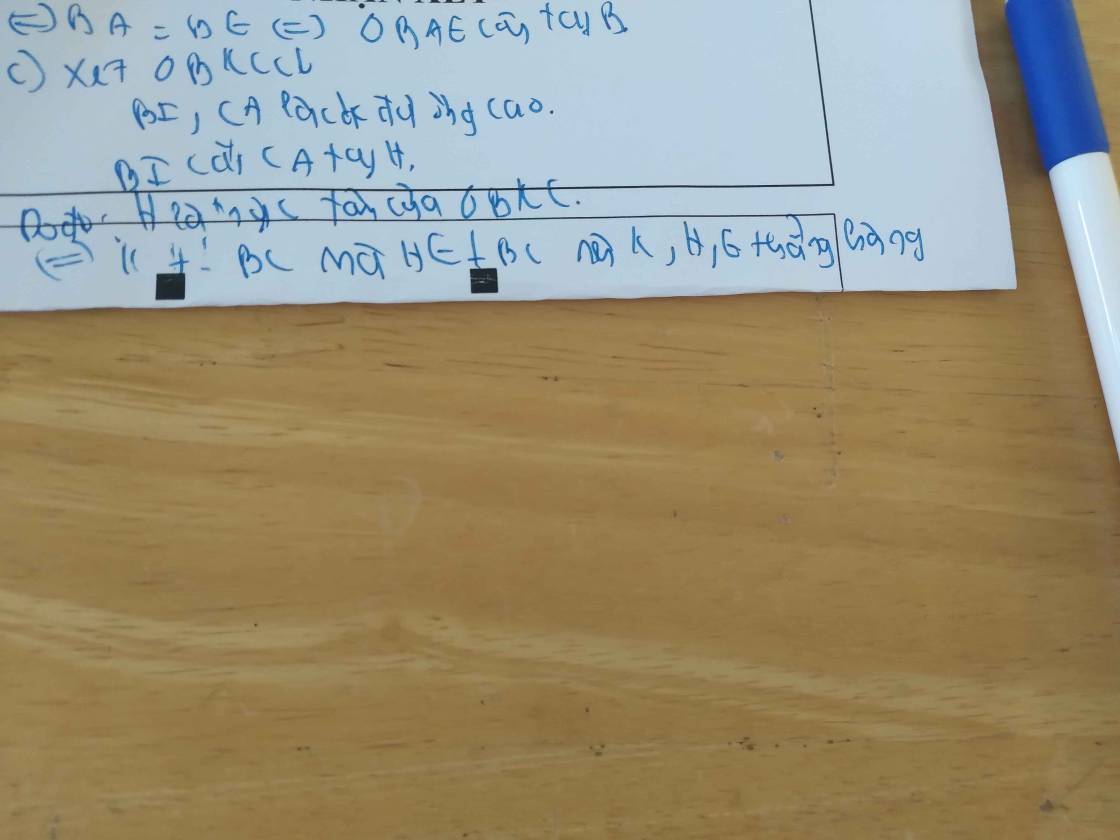 NHẬN XÉT
(=) BA = BE (=) ΔBAE cân tại B
c) Xét ΔBKC có
BI, CA là các đường cao.
BI cắt CA tại H.
Do đó: H là trực tâm của ΔBKC.
BC mà HE ⊥ BC nên K, H, E thẳng hàng